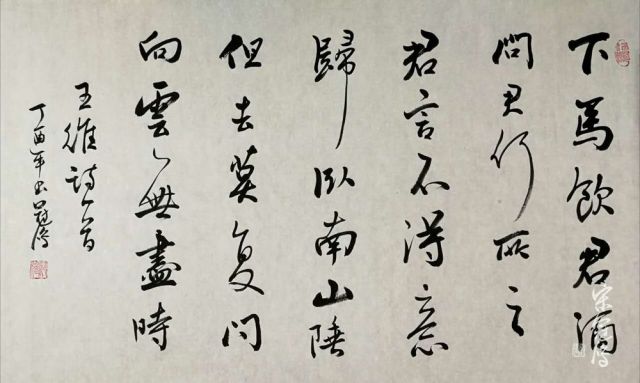 下馬飲君酒
問君何所之
君言不得意
歸臥南山陲
但去莫复问
向雲無盡時
王維詩一首
丁酉年书